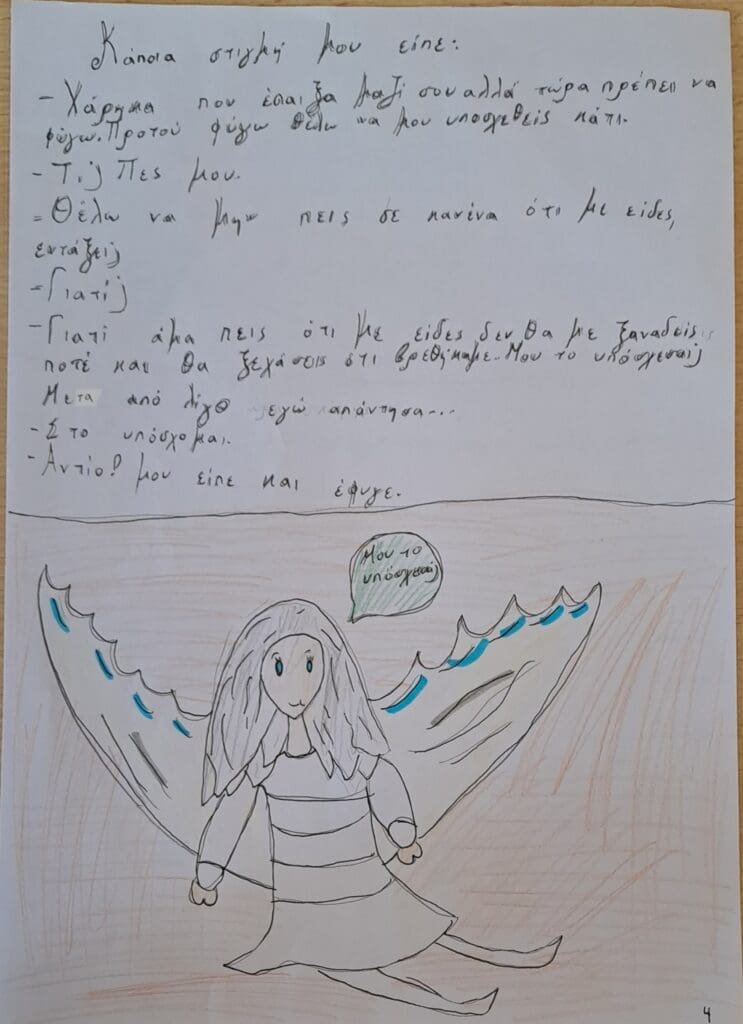 Κάποια στιγμή μου είπε:
- Χάρηκα που έπαιξα μαζί σου αλλά τώρα πρέπει να
φύγω. Προτού φύγω θέλω να μου υποσχεθείς κάτι.
- Τι; Πες μου.
- Θέλω να μην πεις σε κανένα ότι με είδες,
εντάξει;
- Γιατί;
- Γιατί άμα πεις ότι με είδες δεν θα με ξαναδείς
ποτέ και θα ξεχάσεις ότι βρεθήκαμε. Μου το υπόσχεσαι;
Μετα από λίγο εγώ απάντησα...
- Σ το υπόσχομαι.
- Αντίο! μου είπε και έφυγε.
Μου το
υπόσχεσαι;
4